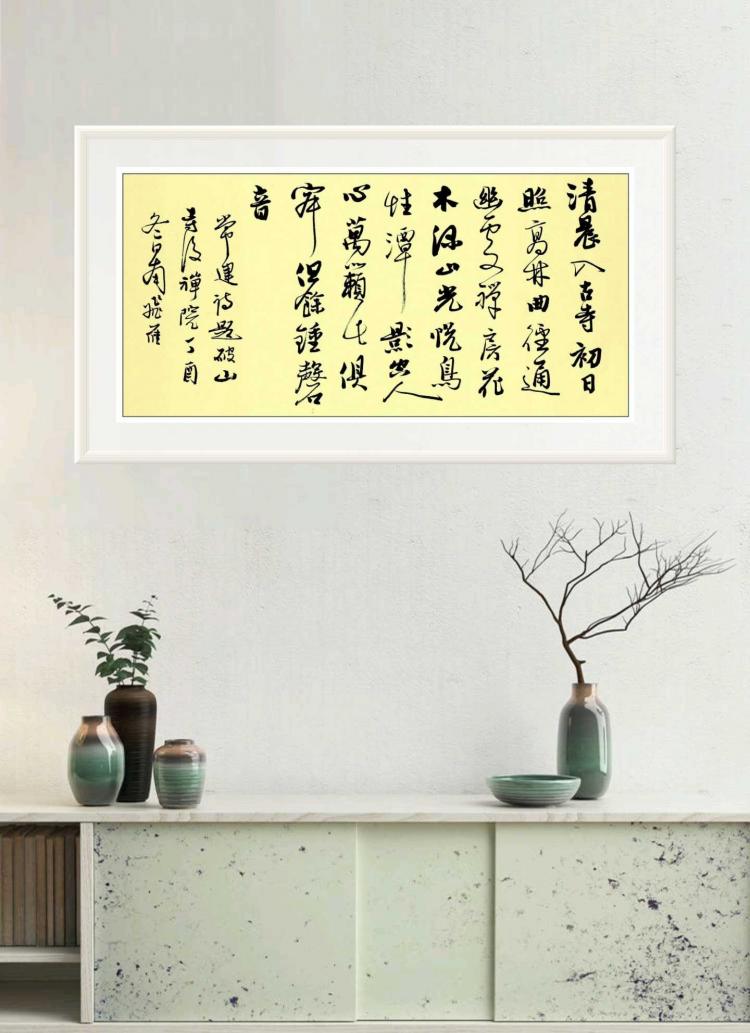 清晨入古寺初日
照高林曲徑通
幽處禪房花
木深山光悅鳥
性潭影空人
心萬籟此俱
寂但餘鍾磬
音
常建诗题破山
寺後禪院丁酉
冬日南飛雁